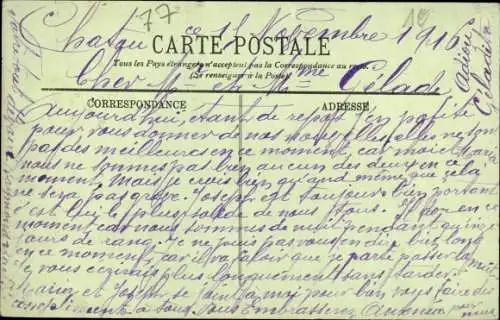 77
Chatou ce 15 Novembre 1916
CARTE POSTALE
Tous les Pays étrangers n'acceptent pas la Correspondance au recto.
(Se renseigner à la Poste)
Cher Mr et Mme Gélade
CORRESPONDANCE
ADRESSE
Aujourd'hui, étant de repos j'en profite
pour vous donner de nos nouvelles elles ne sont
pas des meilleures en ce moment, car moi et Marie
nous ne sommes pas bien aucun des deux en ce
moment mais je crois bien quand même que cela
ne sera pas grave. Joseph est toujours bien portant
c'est lui le plus solide de nous tous. en ce
moment car nous sommes de nuit pendant quinze
jours de rang. Je ne puis pas vous en dire bien long
en ce moment, car il va falloir que je parte
vous écrirais plus longuement sans tarder.
Marie et Joseph se joint à moi pour bien vous faire des
compliments à tous. Vous Embrasserez
Adieu
Géladin